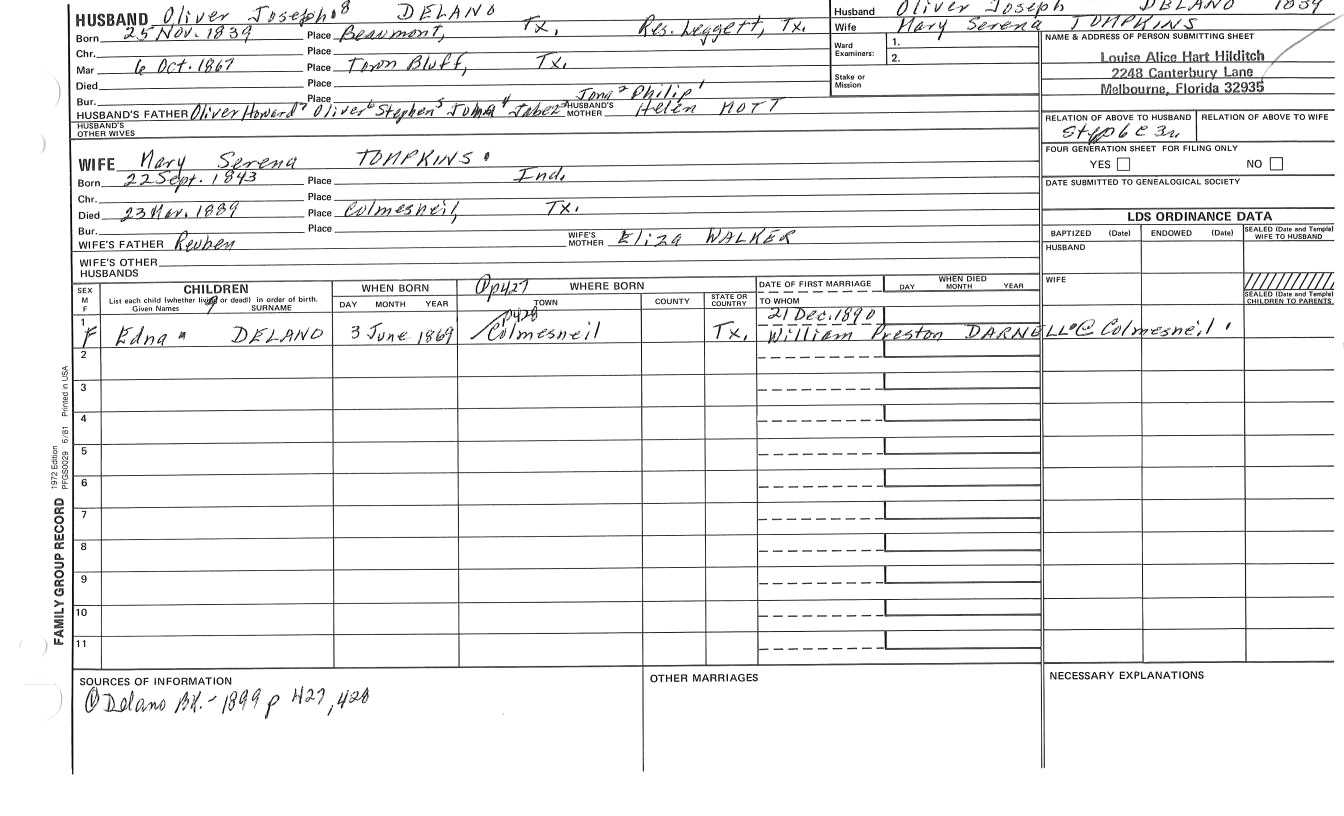 HUSBAND Oliver Joseph 8 DELANO
Born 25 Nov. 1839 Place Beaumont, Tx. Res. Leggett, Tx.
Chr. Place
Mar 6 Oct. 1867 Place Town Bluff, Tx.
Died Place
Bur. Place
Jona 2 Philip 1
HUSBAND'S FATHER Oliver Howard 7 Oliver 6 Stephen 5 4 Jabez 3 HUSBAND'S MOTHER Helen MOTT
HUSBAND'S OTHER WIVES
WIFE Mary Serena TOMPKINS
Born 22 Sept. 1843 Place Ind.
Chr. Place
Died 23 1889 Place Colmesneil, Tx.
Bur. Place
WIFE'S FATHER Reuben WIFE'S MOTHER Eliza WALKER
WIFE'S OTHER HUSBANDS
Husband Oliver Joseph DELANO 1839
Wife Mary Serena TOMPKINS
Ward Examiners: 1.
2.
Stake or Mission
NAME & ADDRESS OF PERSON SUBMITTING SHEET
Louise Alice Hart Hilditch
2248 Canterbury Lane
Melbourne, Florida 32935
RELATION OF ABOVE TO HUSBAND RELATION OF ABOVE TO WIFE
FOUR GENERATION SHEET FOR FILING ONLY
YES NO
DATE SUBMITTED TO GENEALOGICAL SOCIETY
LDS ORDINANCE DATA
BAPTIZED (Date) ENDOWED (Date) SEALED (Date and Temple) WIFE TO HUSBAND
HUSBAND
WIFE
SEALED (Date and Temple) CHILDREN TO PARENTS
SEX M F
CHILDREN
List each child (whether living or dead) in order of birth.
Given Names SURNAME
WHEN BORN
DAY MONTH YEAR
p427 WHERE BORN
TOWN COUNTY STATE OR COUNTRY
DATE OF FIRST MARRIAGE
TO WHOM
WHEN DIED
DAY MONTH YEAR
p428 21 Dec. 1890
1 F Edna DELANO 3 June 1869 Colmesneil Tx. William Preston DARNELL @ Colmesneil
2
3
4
5
6
7
8
9
10
11
SOURCES OF INFORMATION
① Delano Bk. - 1899 p 427, 428
OTHER MARRIAGES
NECESSARY EXPLANATIONS
FAMILY GROUP RECORD
1972 Edition
PFGS0029 6/81 Printed in USA